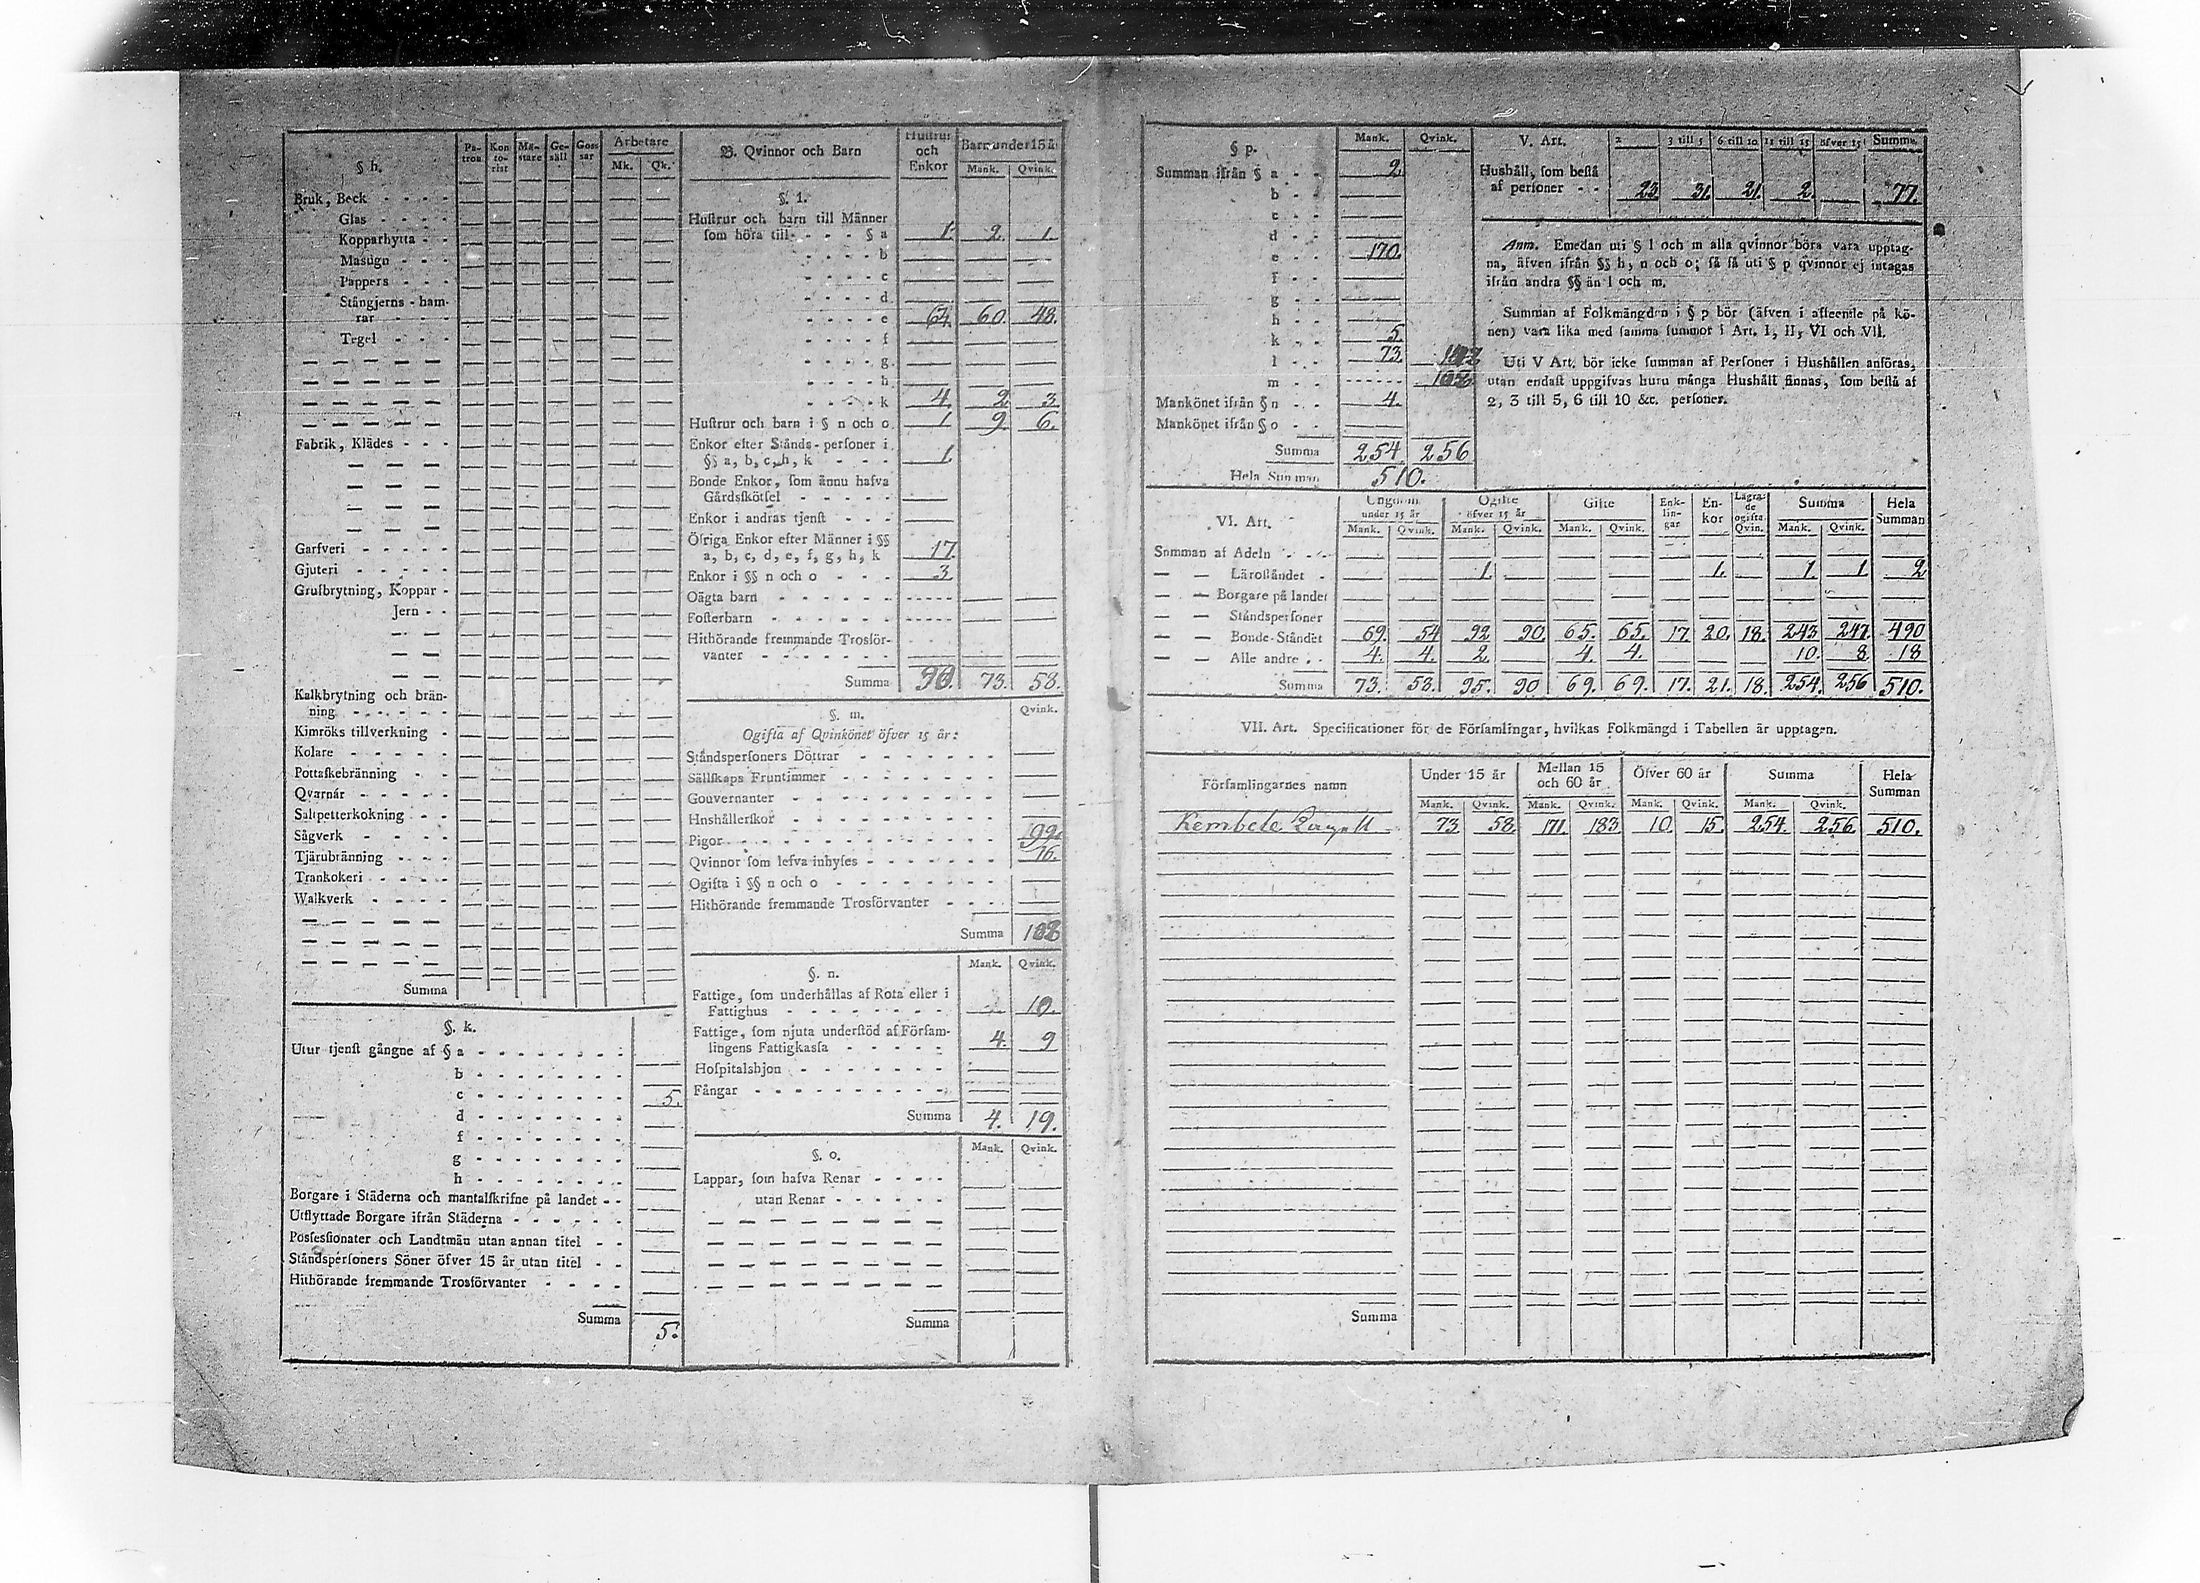 § h.
Patron Kontorist Mästare Gesäll Gossar Arbetare
Mk. Qk.
Bruk, Beck
Glas
Kopparhytta
Masugn
Pappers
Stångjerns-hamrar
Tegel
Fabrik, Klädes
Garfveri
Gjuteri
Grufbrytning, Koppar
Jern
Kalkbrytning och bränning
Kimröks tillverkning
Kolare
Pottaskebränning
Qvarnar
Saltpetterkokning
Sågverk
Tjärubränning
Trankokeri
Walkverk
Summa
§. k.
Utur tjenst gångne af § a
b
c 5.
d
f
g
h
Borgare i Städerna och mantalskrifne på landet
Utflyttade Borgare ifrån Städerna
Possessionater och Landtmän utan annan titel
Ståndspersoners Söner öfver 15 år utan titel
Hithörande fremmande Trosförvanter
Summa 5.
B. Qvinnor och Barn
Hustrur och Enkor Barn under 15 år
Mank. Qvink.
§. l.
Hustrur och barn till Männer
som höra till § a 1. 2. 1.
b
c
d
e 64. 60. 48.
f
g
h
k 4. 2. 3.
Hustrur och barn i § n och o. 1. 9. 6.
Enkor efter Stånds-personer i
§§ a, b, c, h, k 1.
Bonde Enkor, som ännu hafva
Gårdsskötsel
Enkor i andras tjenst
Öfriga Enkor efter Männer i §§
a, b, c, d, e, f, g, h, k 17.
Enkor i §§ n och o 3.
Oägta barn
Fosterbarn
Hithörande fremmande Trosförvanter
Summa 90. 73. 58.
§. m. Qvink.
Ogifta af Qvinkönet öfver 15 år:
Ståndspersoners Döttrar
Sällskaps Fruntimmer
Gouvernanter
Hushållerskor
Pigor
Qvinnor som lefva inhyses 16.
Ogifta i §§ n och o
Hithörande fremmande Trosförvanter
Summa 108
§. n. Mank. Qvink.
Fattige, som underhållas af Rota eller i
Fattighus 10.
Fattige, som njuta understöd af Församlingens Fattigkassa 4. 9
Hospitalshjon
Fångar
Summa 4. 19.
§. o. Mank. Qvink.
Lappar, som hafva Renar
utan Renar
Summa
§ p. Mank. Qvink.
Summan ifrån § a 2.
b
c
d
e 170.
f
g
h
k 5.
l 73.
m
Mankönet ifrån § n 4.
Mankönet ifrån § o
Summa 254. 256
Hela Summan 510.
V. Art. 2 3 till 5 6 till 10 11 till 15 öfver 15 Summa
Hushåll, som bestå
af personer 23. 31. 21. 2. 77.
Anm. Emedan uti § l och m alla qvinnor böra vara upptagna, äfven ifrån §§ h, n och o; så få uti § p qvinnor ej intagas
ifrån andra §§ än l och m.
Summan af Folkmängden i § p bör (äfven i afseende på könen) vara lika med samma summor i Art. I, II, VI och VII.
Uti V Art. bör icke summan af Personer i Hushållen anföras,
utan endast uppgifvas huru många Hushåll finnas, som bestå af
2, 3 till 5, 6 till 10 &c. personer.
VI. Art. Ungdom under 15 år Ogifte öfver 15 år Gifte Enklingar Enkor Lägrade ogifta Qvin. Summa Hela Summan
Mank. Qvink. Mank. Qvink. Mank. Qvink. Mank. Qvink.
Summan af Adeln
Läroståndet 1. 1. 1. 1 2
Borgare på landet
Ståndspersoner
Bonde-Ståndet 69. 54 92 90. 65. 65. 17. 20. 18. 243 247. 490
Alle andre 4. 4. 2. 4. 4. 10. 8. 18
Summa 73. 58. 95. 90 69. 69. 17. 21. 18. 254. 256 510.
VII. Art. Specificationer för de Församlingar, hvilkas Folkmängd i Tabellen är upptagen.
Församlingarnes namn Under 15 år Mellan 15 och 60 år Öfver 60 år Summa Hela Summan
Mank. Qvink. Mank. Qvink. Mank. Qvink. Mank. Qvink.
73 58. 171. 183 10. 15. 254. 256. 510.
Summa